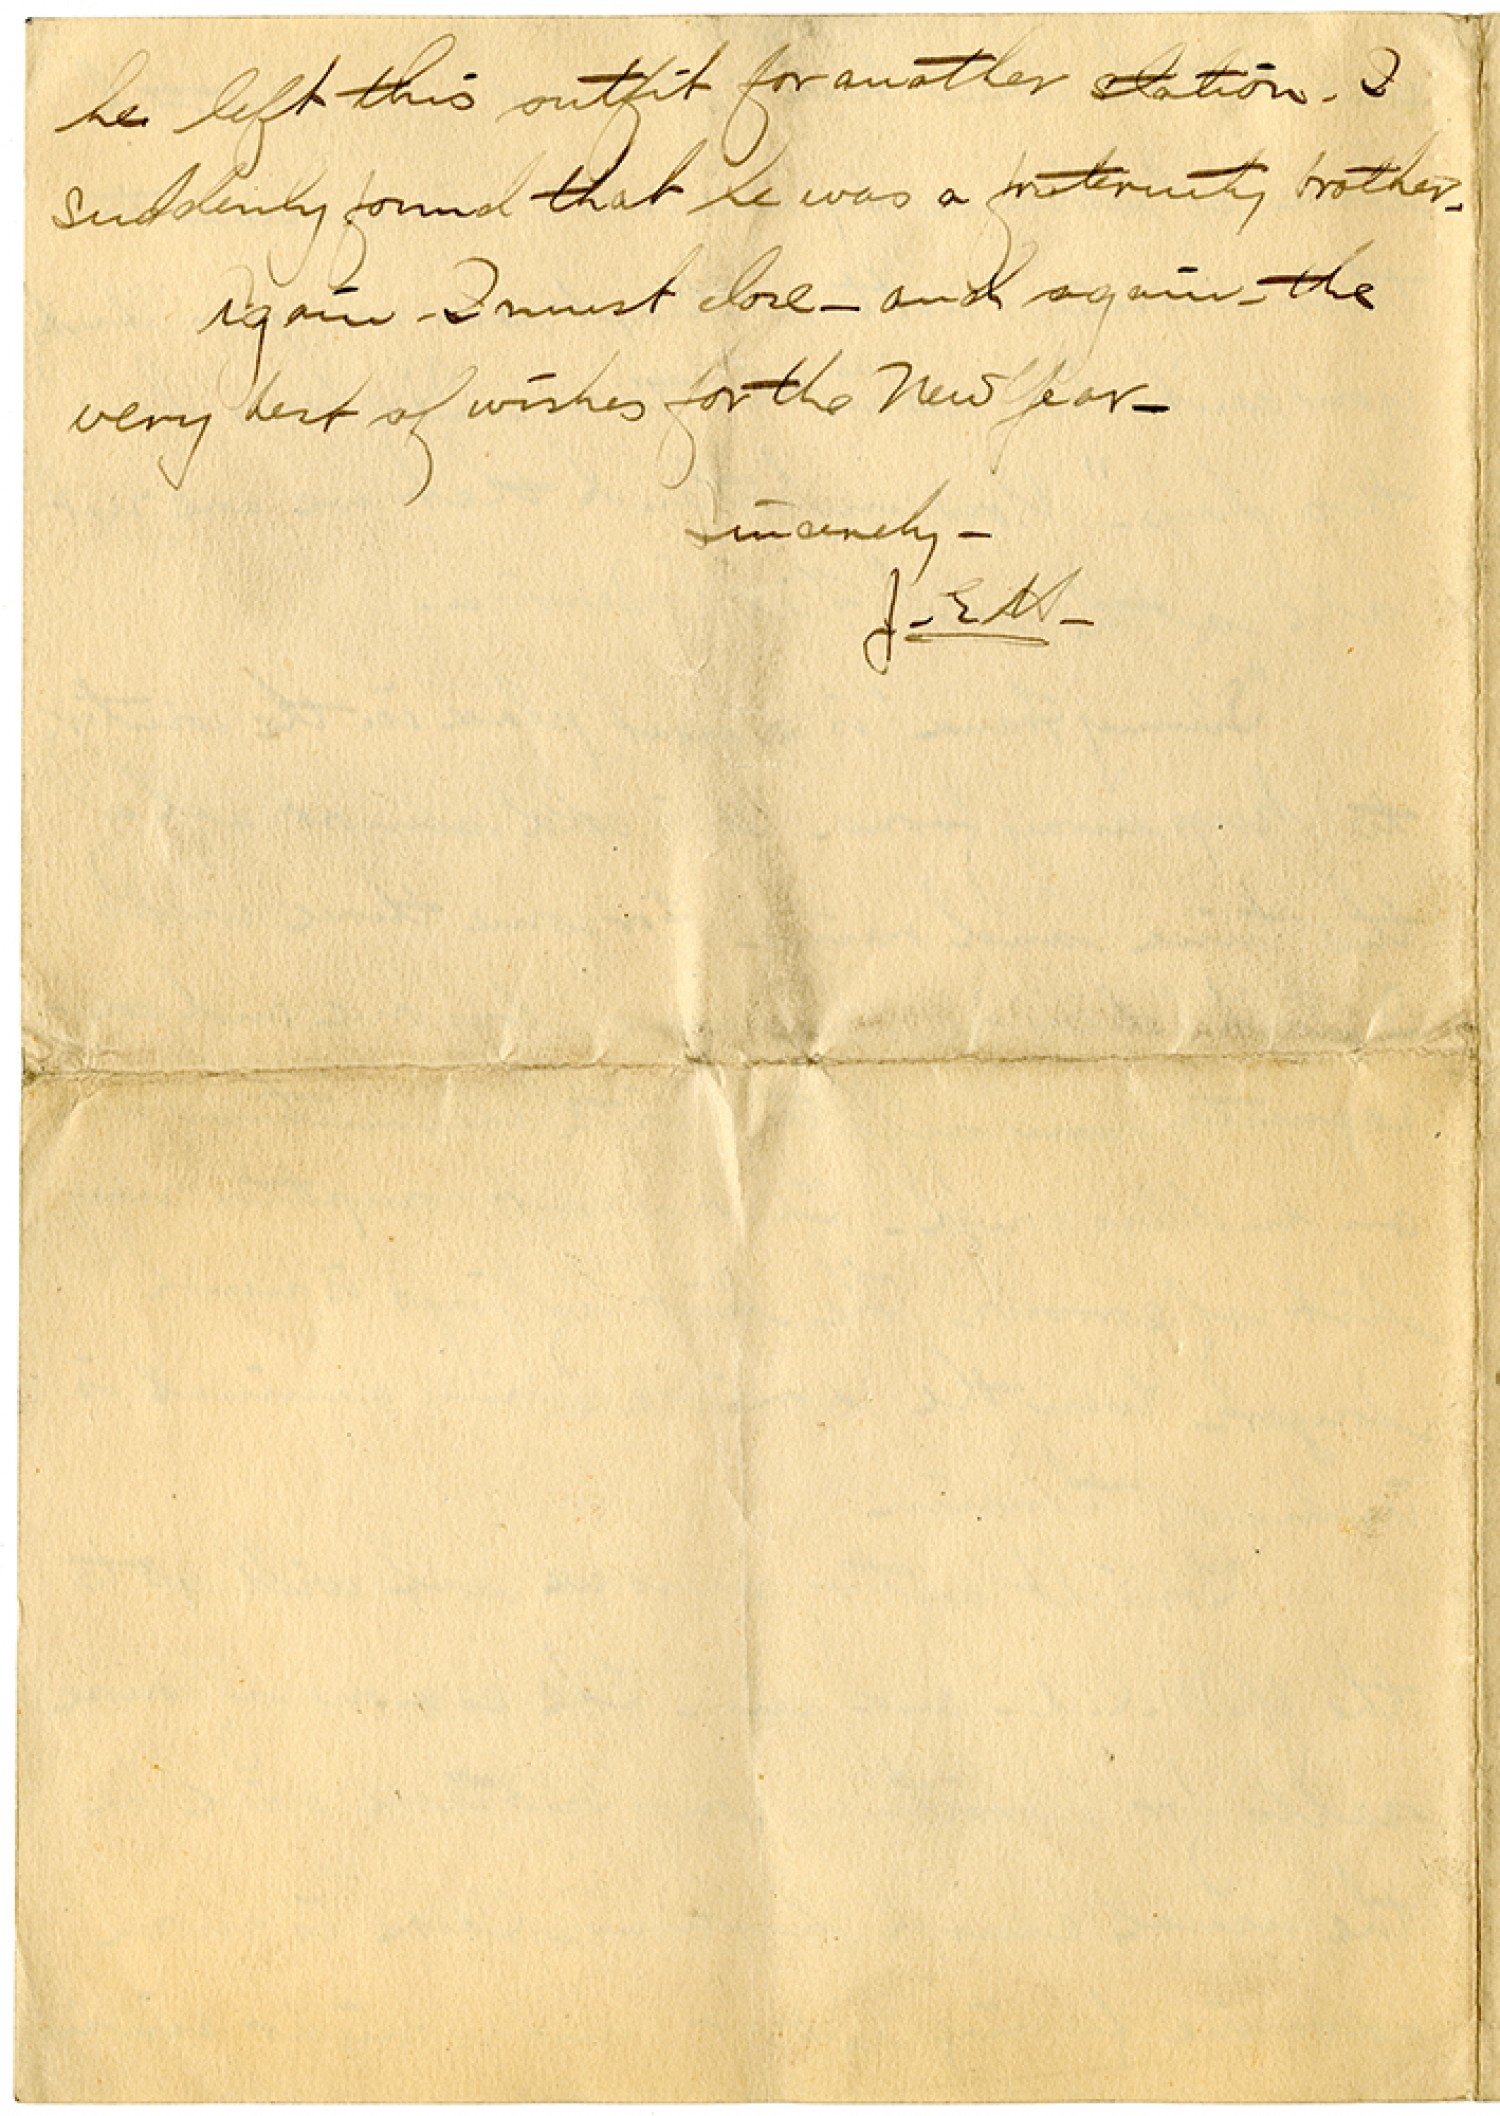 he left this outfit for another station. I
suddenly found that he was a fraternity brother.
Again - I must close - and again - the
very best of wishes for the New Year -
Sincerely -
J. E. H. -